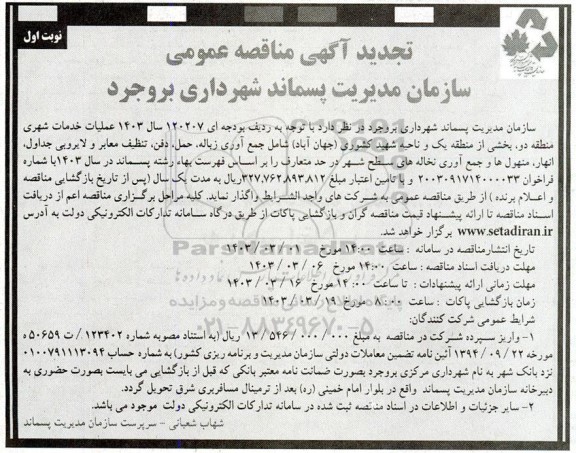 نوبت اول
تجدید آگهی مناقصه عمومی
سازمان مدیریت پسماند شهرداری بروجرد
سازمان مدیریت پسماند شهرداری بروجرد در نظر دارد با توجه به ردیف بودجه ای ۱۲۰۲۰۷ سال ۱۴۰۳ عملیات خدمات شهری
منطقه دو، بخشی از منطقه یک و ناحیه شهید کشوری (جهان آباد) شامل جمع آوری زباله، حمل، دفن، تنظیف معابر و لایروبی جداول،
انهار، منهول ها و جمع آوری نخاله های سطح شهر در حد متعارف را بر اساس فهرست بهاء رشته پسماند در سال ۱۴۰۳با شماره
فراخوان ۲۰۰۳۰۹۱۷۱۴۰۰۰۰۳۳ و با تامین اعتبار مبلغ ۳۲۷,۷۶۲,۸۹۳,۸۱۲ریال به مدت یک سال (پس از تاریخ بازگشایی مناقصه
و اعلام برنده ) از طریق مناقصه عمومی به شرکت های واجد الشرایط واگذار نماید. کلیه مراحل برگزاری مناقصه اعم از دریافت
اسناد مناقصه تا ارائه پیشنهاد قیمت مناقصه گران و بازگشایی پاکات از طریق درگاه سامانه تدارکات الکترونیکی دولت به آدرس
www.setadiran.ir برگزار خواهد شد.
تاریخ انتشارمناقصه در سامانه : ساعت ۱۴:۰۰ مورخ ۱۴۰۳/۰۳/۰۱
مهلت دریافت اسناد مناقصه : ساعت ۱۴:۰۰ مورخ ۱۴۰۳/۰۳/۰۶
مهلت زمانی ارائه پیشنهادات : تا ساعت ۱۴:۰۰ مورخ ۱۴۰۳/۰۳/۱۶
زمان بازگشایی پاکات : ساعت ۸:۰۰ مورخ ۱۴۰۳/۰۳/۱۹
شرایط عمومی شرکت کنندگان:
۱- واریز سپرده شرکت در مناقصه به مبلغ ۱۳/۵۴۶/۰۰۰/۰۰۰ ریال (به استناد مصوبه شماره ۱۲۳۴۰۲/ت ۵۰۶۵۹ ه
مورخه ۱۳۹۴/۰۹/۲۲ آئین نامه تضمین معاملات دولتی سازمان مدیریت و برنامه ریزی کشور) به شماره حساب ۰۱۰۰۷۹۱۱۱۳۰۹۴
نزد بانک شهر به نام شهرداری مرکزی بروجرد بصورت ضمانت نامه معتبر بانکی که قبل از بازگشایی می بایست بصورت حضوری به
دبیرخانه سازمان مدیریت پسماند واقع در بلوار امام خمینی (ره) بعد از ترمینال مسافربری شرق تحویل گردد.
۲- سایر جزئیات و اطلاعات در اسناد مناقصه ثبت شده در سامانه تدارکات الکترونیکی دولت موجود می باشد.
شهاب شعبانی - سرپرست سازمان مدیریت پسماند
ParsNamadData
۰۲۱-۸۸۳۴۹۶۷۰-۵